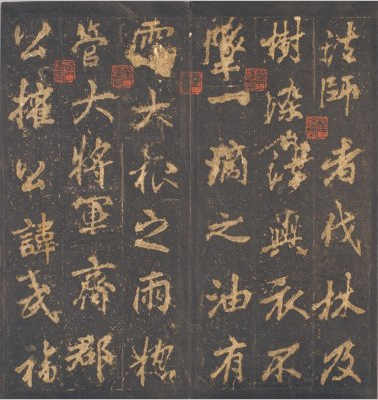 法師者伐林及
樹染法與衣不
墜一滴之油有
霑大根之雨揔
管大將軍齊郡
公權公諱武福